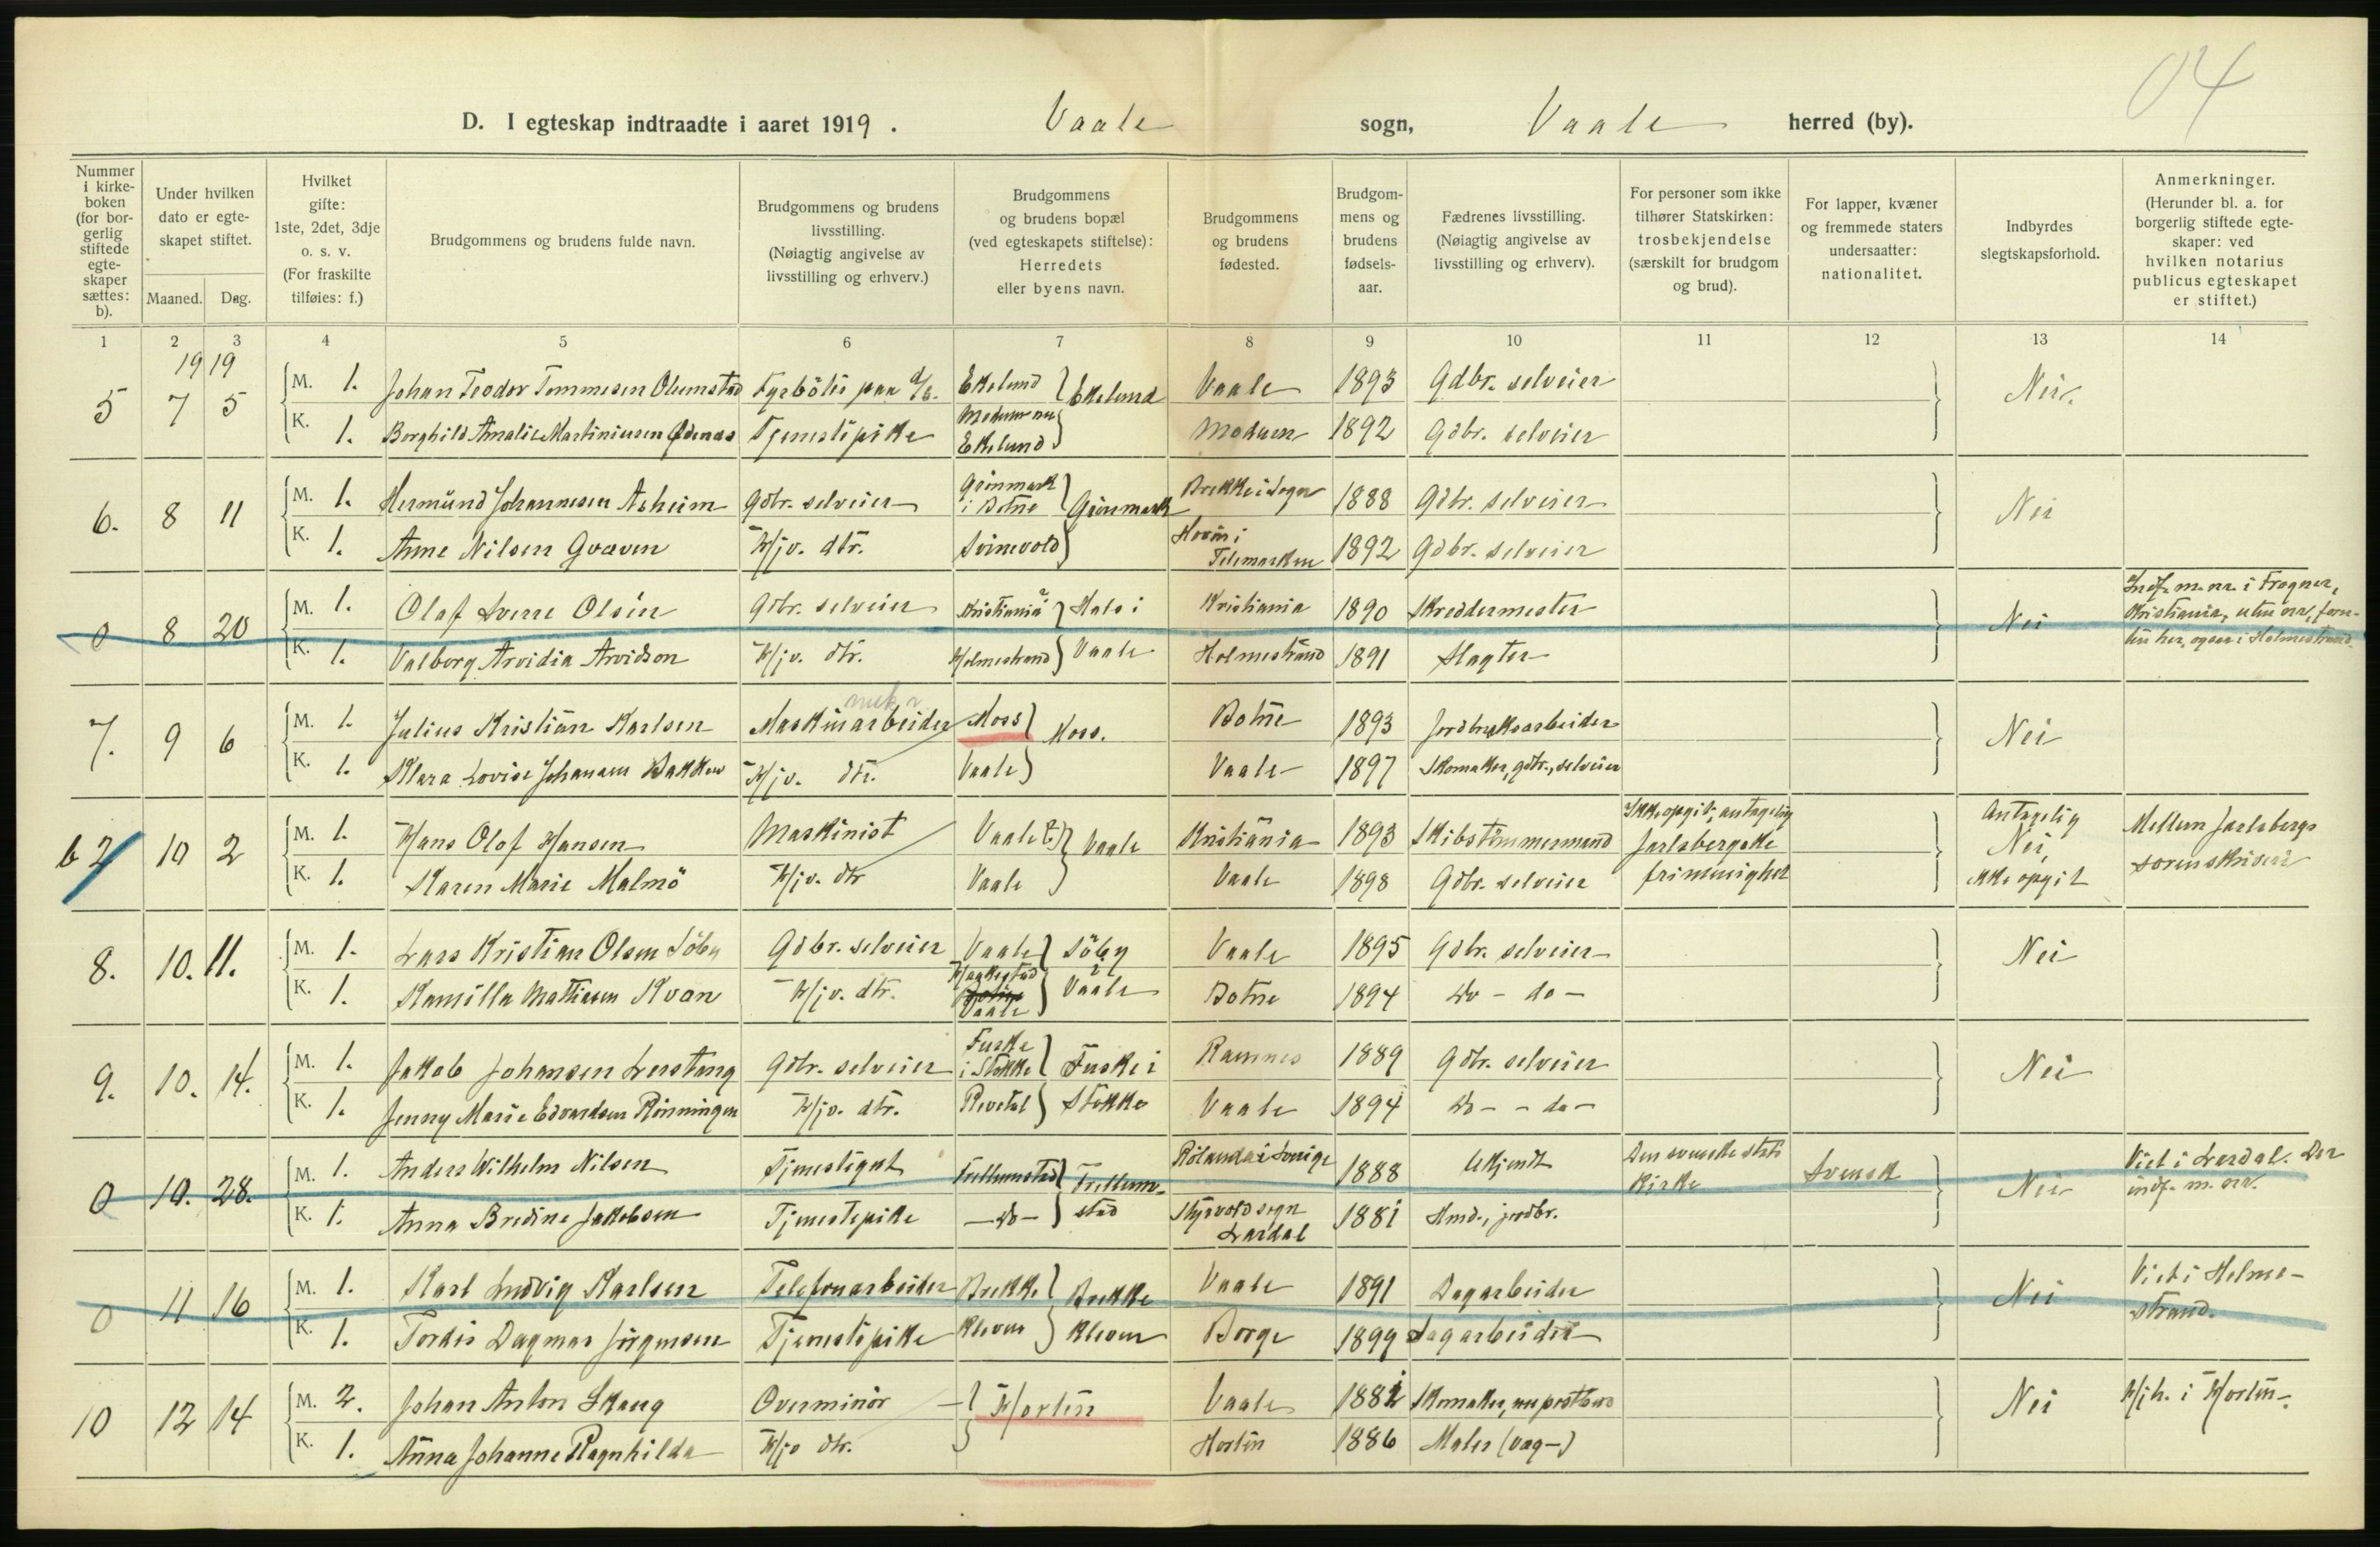 04
D. I egteskap indtraadte i aaret 1919. Vaale sogn, Vaale herred (by).
Nummer i kirke-boken (for bor-gerlig stiftede egte-skaper sættes: b).
Under hvilken dato er egte-skapet stiftet.
Maaned. Dag.
Hvilket gifte: 1ste, 2det, 3dje o. s. v. (For fraskilte tilføies: f.)
Brudgommens og brudens fulde navn.
Brudgommens og brudens livsstilling. (Nøiagtig angivelse av livsstilling og erhverv.)
Brudgommens og brudens bopæl (ved egteskapets stiftelse): Herredets eller byens navn.
Brudgommens og brudens fødested.
Brudgom-mens og brudens fødsels-aar.
Fædrenes livsstilling. (Nøiagtig angivelse av livsstilling og erhverv).
For personer som ikke tilhører Statskirken: trosbekjendelse (særskilt for brudgom og brud).
For lapper, kvæner og fremmede staters undersaatter: nationalitet.
Indbyrdes slegtskapsforhold.
Anmerkninger. (Herunder bl. a. for borgerlig stiftede egte-skaper: ved hvilken notarius publicus egteskapet er stiftet.)
1 2 3 4 5 6 7 8 9 10 11 12 13 14
1919
5 7 5 M. 1. Johan Teodor Tommesen Olumstad Fyrbøter paa d/s. Ekelund Ekelund Vaale 1893 Gdbr. selveier Nei.
K. 1. Borghild Amalie Martiniusen Ødenes Tjenestepike Modum nu Ekelund Modum 1892 Gdbr. selveier
6. 8 11 M. 1. Hermund Johannesen Asheim Gdbr. selveier Grønmark i Botne Grønmark Brekke i Sogn 1888 Gdbr. selveier Nei
K. 1. Anne Nilsen Graven Hjv. dtr. Svinevold Hovin i Telemarken 1892 Gdbr. selveier
0 8 20 M. 1. Olaf Sverre Olsen Gdbr. selveier Kristiania Hals i Kristiania 1890 Skreddermester Nei Indf. m. nr. i Frogner, Kristiania, uten nr, foru-ten her, ogsaa i Holmestrand.
K. 1. Valborg Arvidia Arvidson Hjv. dtr. Holmestrand Vaale Holmestrand 1891 Slagter
7. 9 6 M. 1. Julius Kristian Karlsen Maskinarbeider Moss Moss. Botne 1893 Jordbruksarbeider Nei
K. 1. Klara Lovise Johansen Bakken Hjv. dtr. Vaale Vaale 1897 Skomaker, gdbr., selveier
b 2 10 2 M. 1. Hans Olaf Hansen Maskinist Vaale(?) Vaale Kristiania 1893 Skibstømmermand Ikke opgit, antagelig Jarlsbergske frimenighet Antagelig Nei, ikke opgit Mellem Jarlsbergs sorenskriveri
K. 1. Karen Marie Malmö Hjv. dtr Vaale Vaale 1898 Gdbr. selveier
8. 10. 11. M. 1. Lars Kristian Olsen Söby Gdbr. selveier Vaale Söby i Vaale Vaale 1895 Gdbr. selveier Nei
K. 1. Kamilla Mattisen Kvan Hjv. dtr. Haakestad Botne Vaale Botne 1894 Do - do -
9. 10. 14. M. 1. Jakob Johansen Lerstang Gdbr. selveier Fuske i Stokke Fuske i Stokke Ramnes 1889 Gdbr. selveier Nei
K. 1. Jenny Marie Edvardsen Rönningen Hjv. dtr. Revetal Vaale 1894 Do - - do -
0 10. 28. M. 1. Anders Wilhelm Nilsen Tjenestegut Frellumstad Frellum-stad Rölanda i Sverige 1888 Ukjendt Den svenske stats kirke Svensk Nei Viet i Lardal. Der indf. m. nr.
K. 1. Anna Bredine Jakobsen Tjenestepike - do - Styrvold sogn Lardal 1881 Hmd., jordbr.
0 11 16 M. 1. Karl Ludvig Karlsen Telefonarbeider Brekke Brekke Vaale 1891 Dagarbeider Nei Viet i Holme-strand.
K. 1. Tordis Dagmar Jörgensen Tjenestepike Kleven Kleven Borge 1899 Dagarbeider
10 12 14 M. 2. Johan Anton Skaug Overminör - Horten Vaale 1882 Skomaker, nu postbud Nei Hjh. i Horten.
K. 1. Anna Johanne Ragnhilda Hjv dtr. Horten 1886 Maler (vag-)